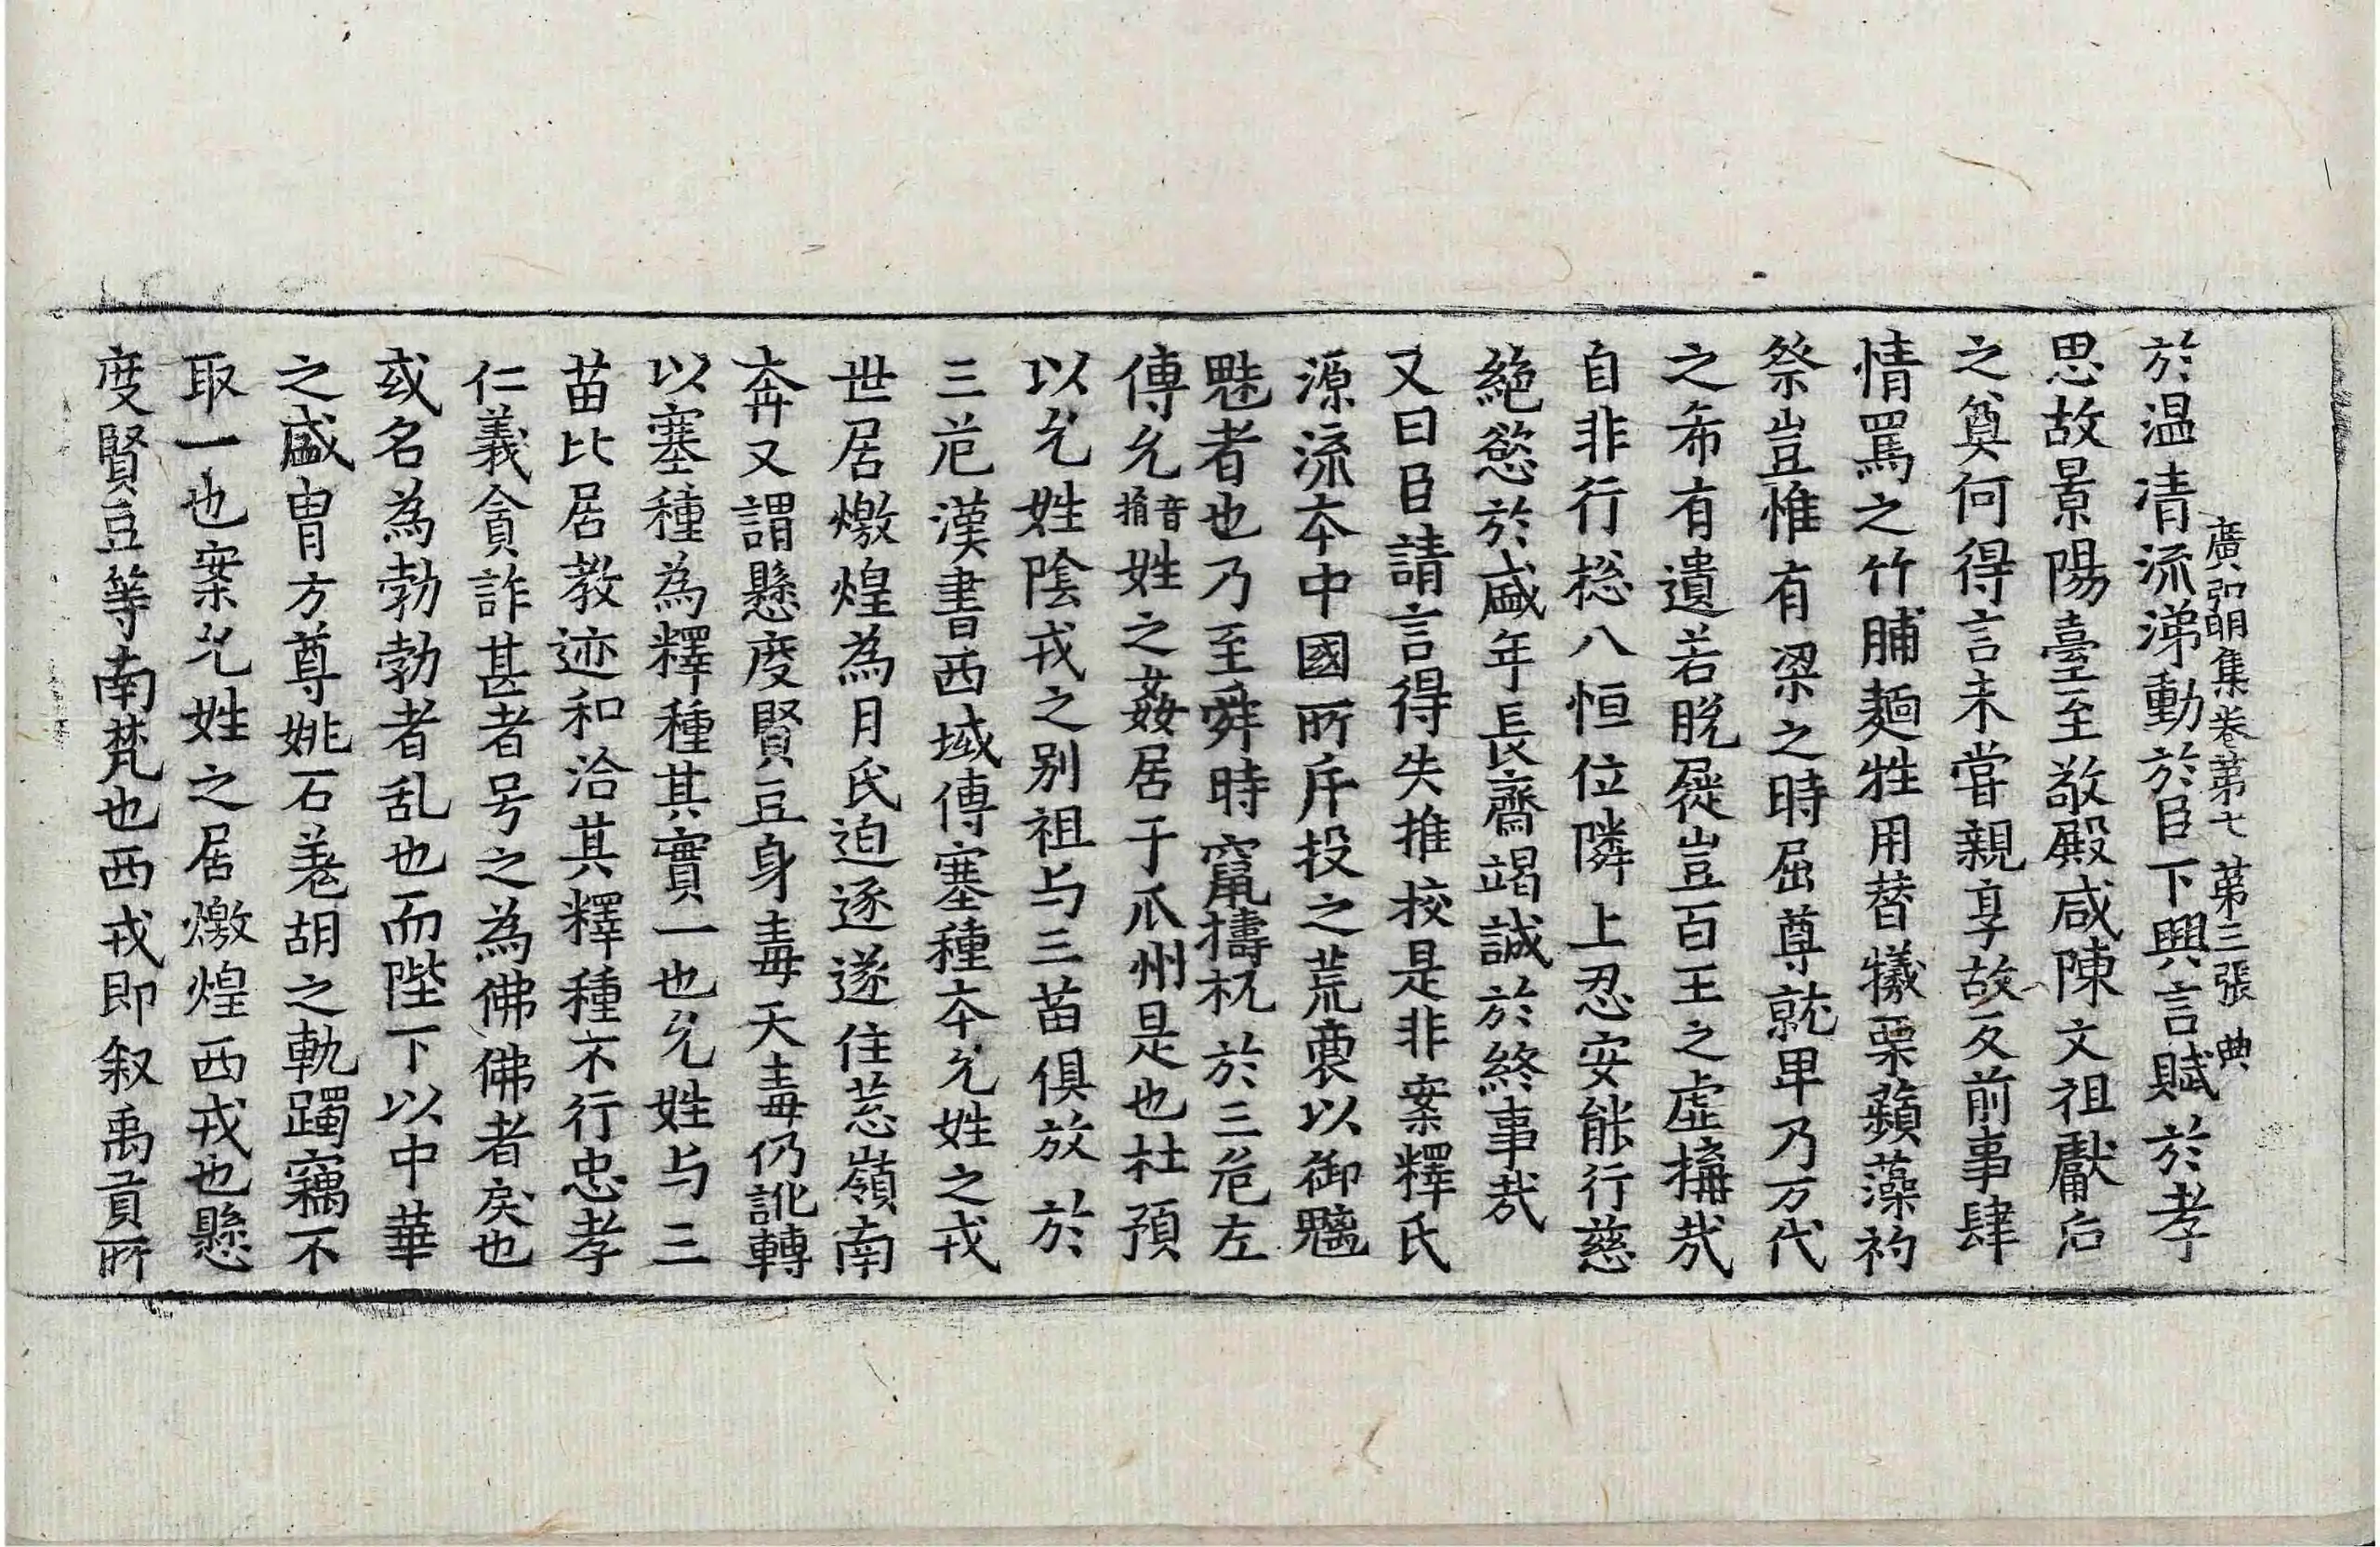 廣弘明集卷第七 第三張 典
於温清流涕動於臣下興言賦於孝
思故景陽臺至敬殿咸陳文祖獻后
之奠何得言未嘗親享故反前事肆
情罵之竹脯麺牲用替犧栗蘋藻礿
祭豈惟有梁之時屈尊就卑乃万代
之希有遺若脱屣豈百王之虚搆哉
自非行捴八恒位隣上忍安能行慈
絶慾於盛年長齋竭誠於終事哉
又曰臣請言得失推挍是非案釋氏
源流夲中國所斥投之荒裔以御魑
魅者也乃至舜時竄檮杌於三危左
傳允音捐姓之姦居于瓜州是也杜預
以允姓陰戎之别祖与三苗俱放於
三危漢書西域傳塞種夲允姓之戎
世居燉煌為月氏迫逐遂住葱嶺南
奔又謂懸度賢豆身毒天毒仍訛轉
以塞種為釋種其實一也允姓与三
苗比居教迹和洽其釋種不行忠孝
仁義貪詐甚者号之為佛佛者戾也
或名為勃勃者乱也而陛下以中華
之盛胄方尊姚石羗胡之軌躅竊不
取一也案允姓之居燉煌西戎也懸
度賢豆等南梵也西戎即叙禹貢所